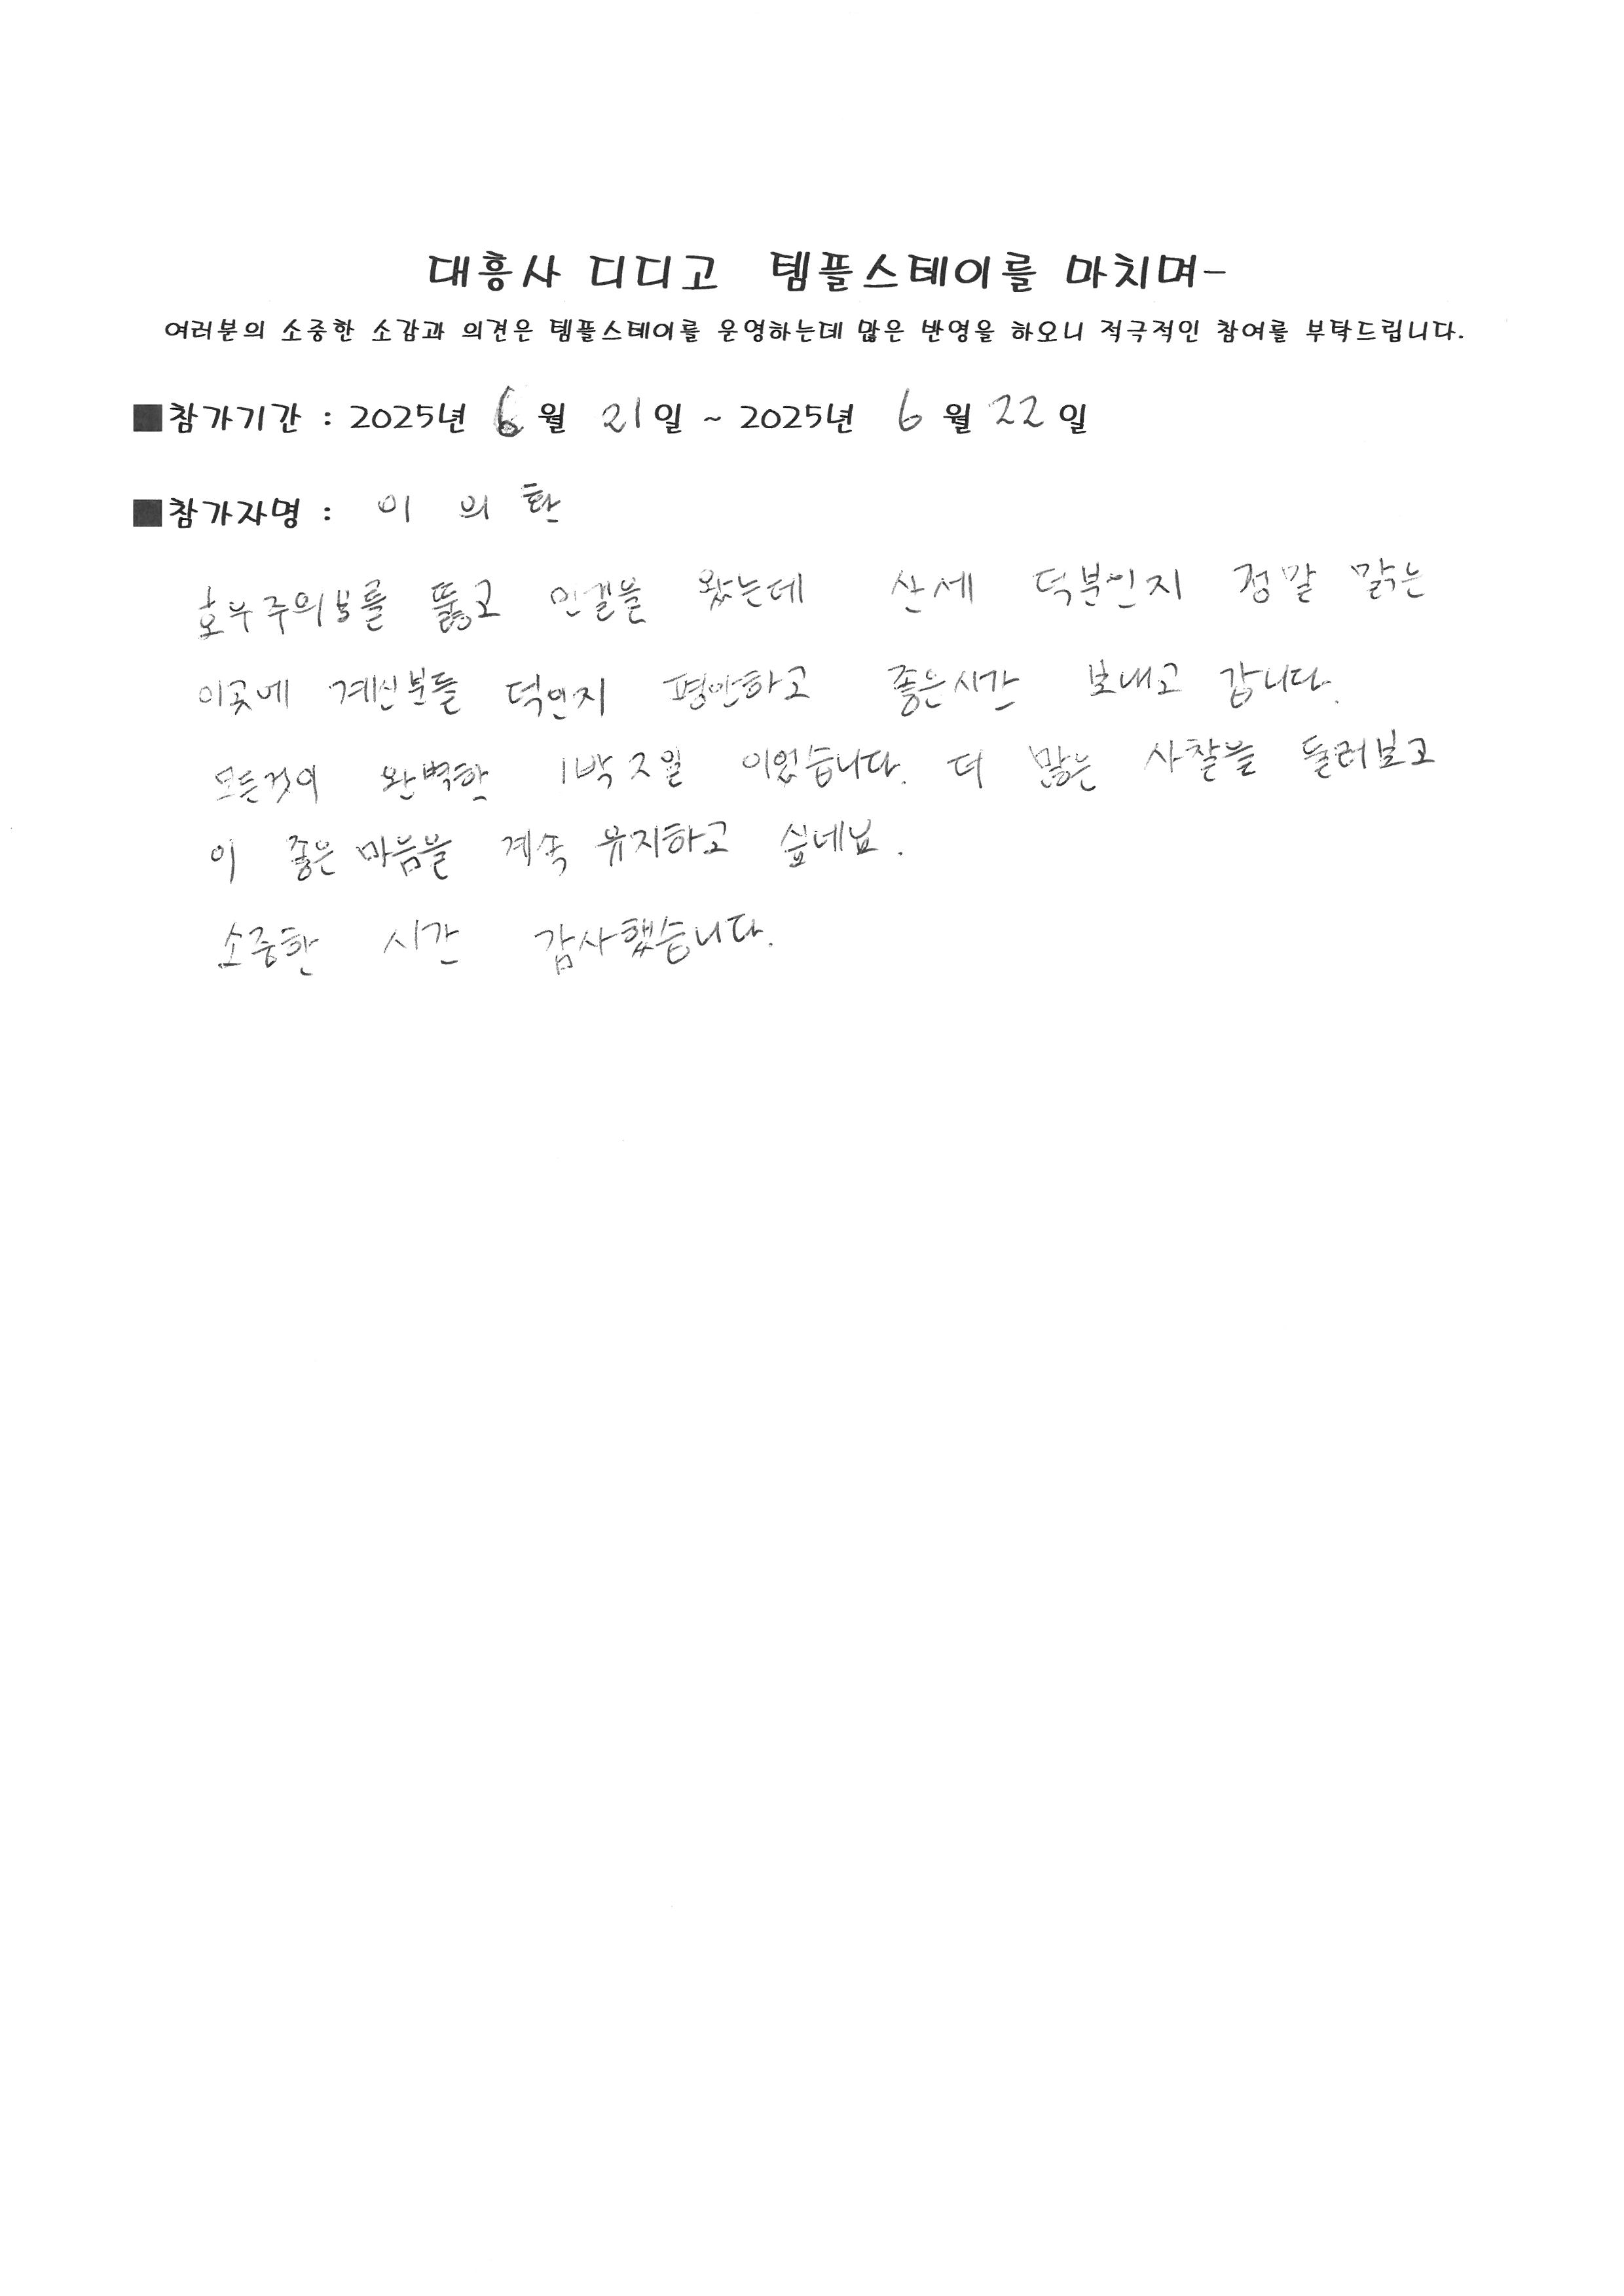 대흥사 디디고 템플스테이를 마치며-
여러분의 소중한 소감과 의견은 템플스테이를 운영하는데 많은 반영을 하오니 적극적인 참여를 부탁드립니다.
■참가기간 : 2025년 6월 21일 ~ 2025년 6월 22일
■참가자명 : 이 의 환
호우주의보를 뚫고 먼길을 왔는데 산세 덕분인지 정말 맑은
이곳에 계신분들 덕인지 평안하고 좋은시간 보내고 갑니다.
모든것이 완벽한 1박 2일 이었습니다. 더 많은 사찰을 둘러보고
이 좋은 마음을 계속 유지하고 싶네요.
소중한 시간 감사했습니다.